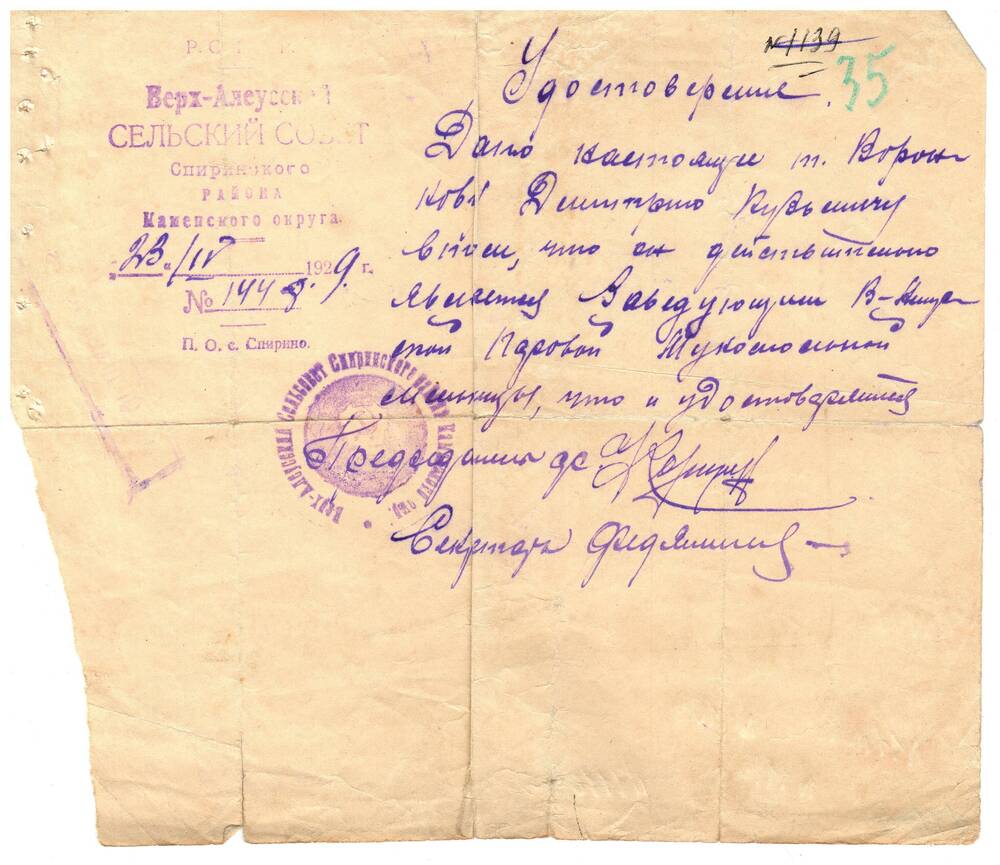 Р.С.
Верх-Алеусской
СЕЛЬСКИЙ СОВЕТ
Спиринского
РАЙОНА
Каменского округа.
"23"/IV 1929 г.
№ 1443
П. О. с. Спирино.
№1139
35
Удостоверение.
Дано настоящее т. Ворон-
кову Дмитрию Кузьмичу
в том, что он действительно
является Заведующим В-
ской Паровой Мукомольной
мельницы, что и удостоверяется
Председатель с/с
Секретарь
Верх-Алеусский Сельсовет Спиринского района Каменского окр.